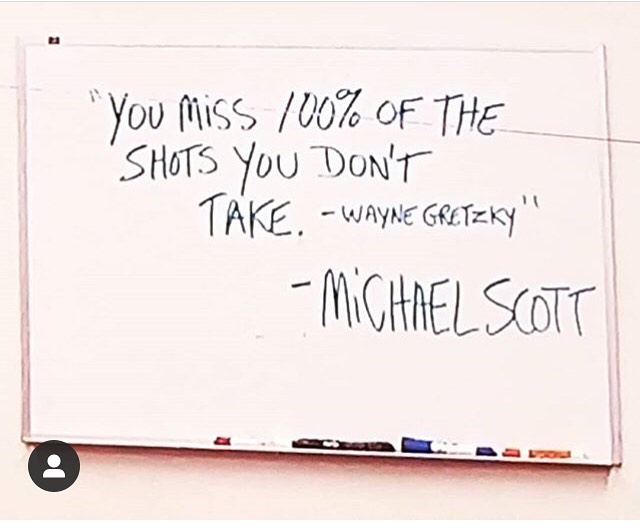 "YOU MiSS 100% OF THE
SHOTS YOU DON'T
TAKE. - WAYNE GRETZKY"
- MiCHAEL SCOTT